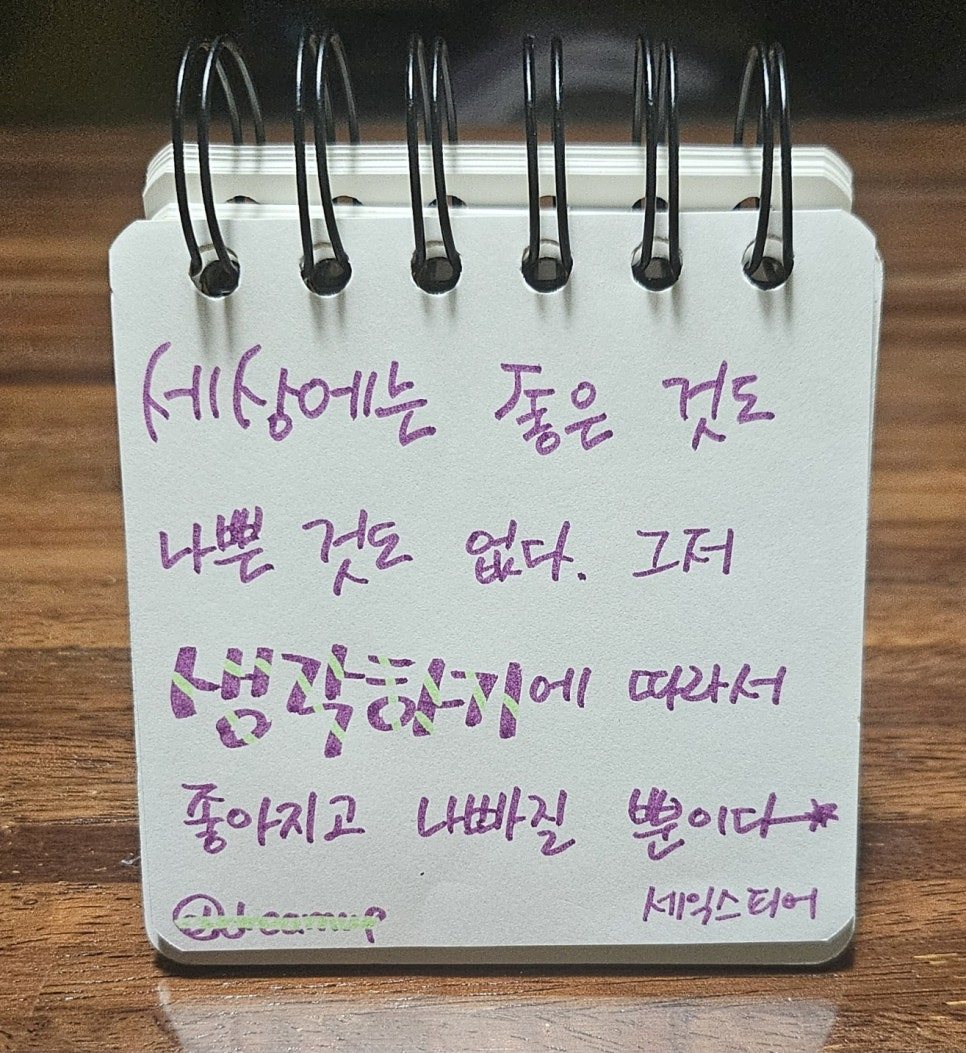 세상에는 좋은 것도
나쁜 것도 없다. 그저
생각하기에 따라서
좋아지고 나빠질 뿐이다
세익스티어